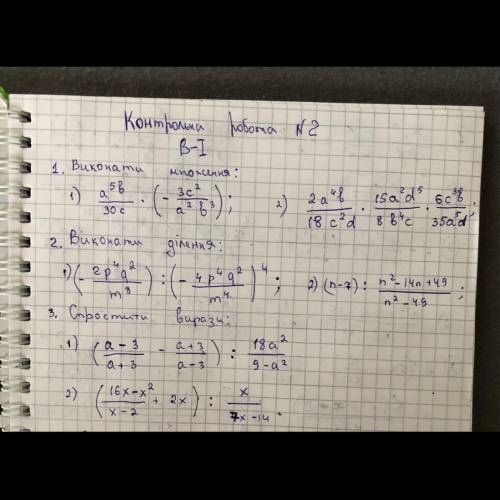 Контрольна робота N2
В-I
1. Виконати множення:
1) a⁵b/30c · (- 3c²/a²b³); 2) 2a⁴b/18c²d · 15a²d⁵/8b⁴c · 6c³b/35a⁵d;
2. Виконати ділення:
1) (- 2p⁴q²/m³) : (- 4p⁴q²/m⁴)⁴ 2) (n-7) : n²-14n+49/n²-49;
3. Спростити вирази:
1) (a-3/a+3 - a+3/a-3) : 18a²/9-a²
2) (16x-x²/x-2 + 2x) : x/7x-14.